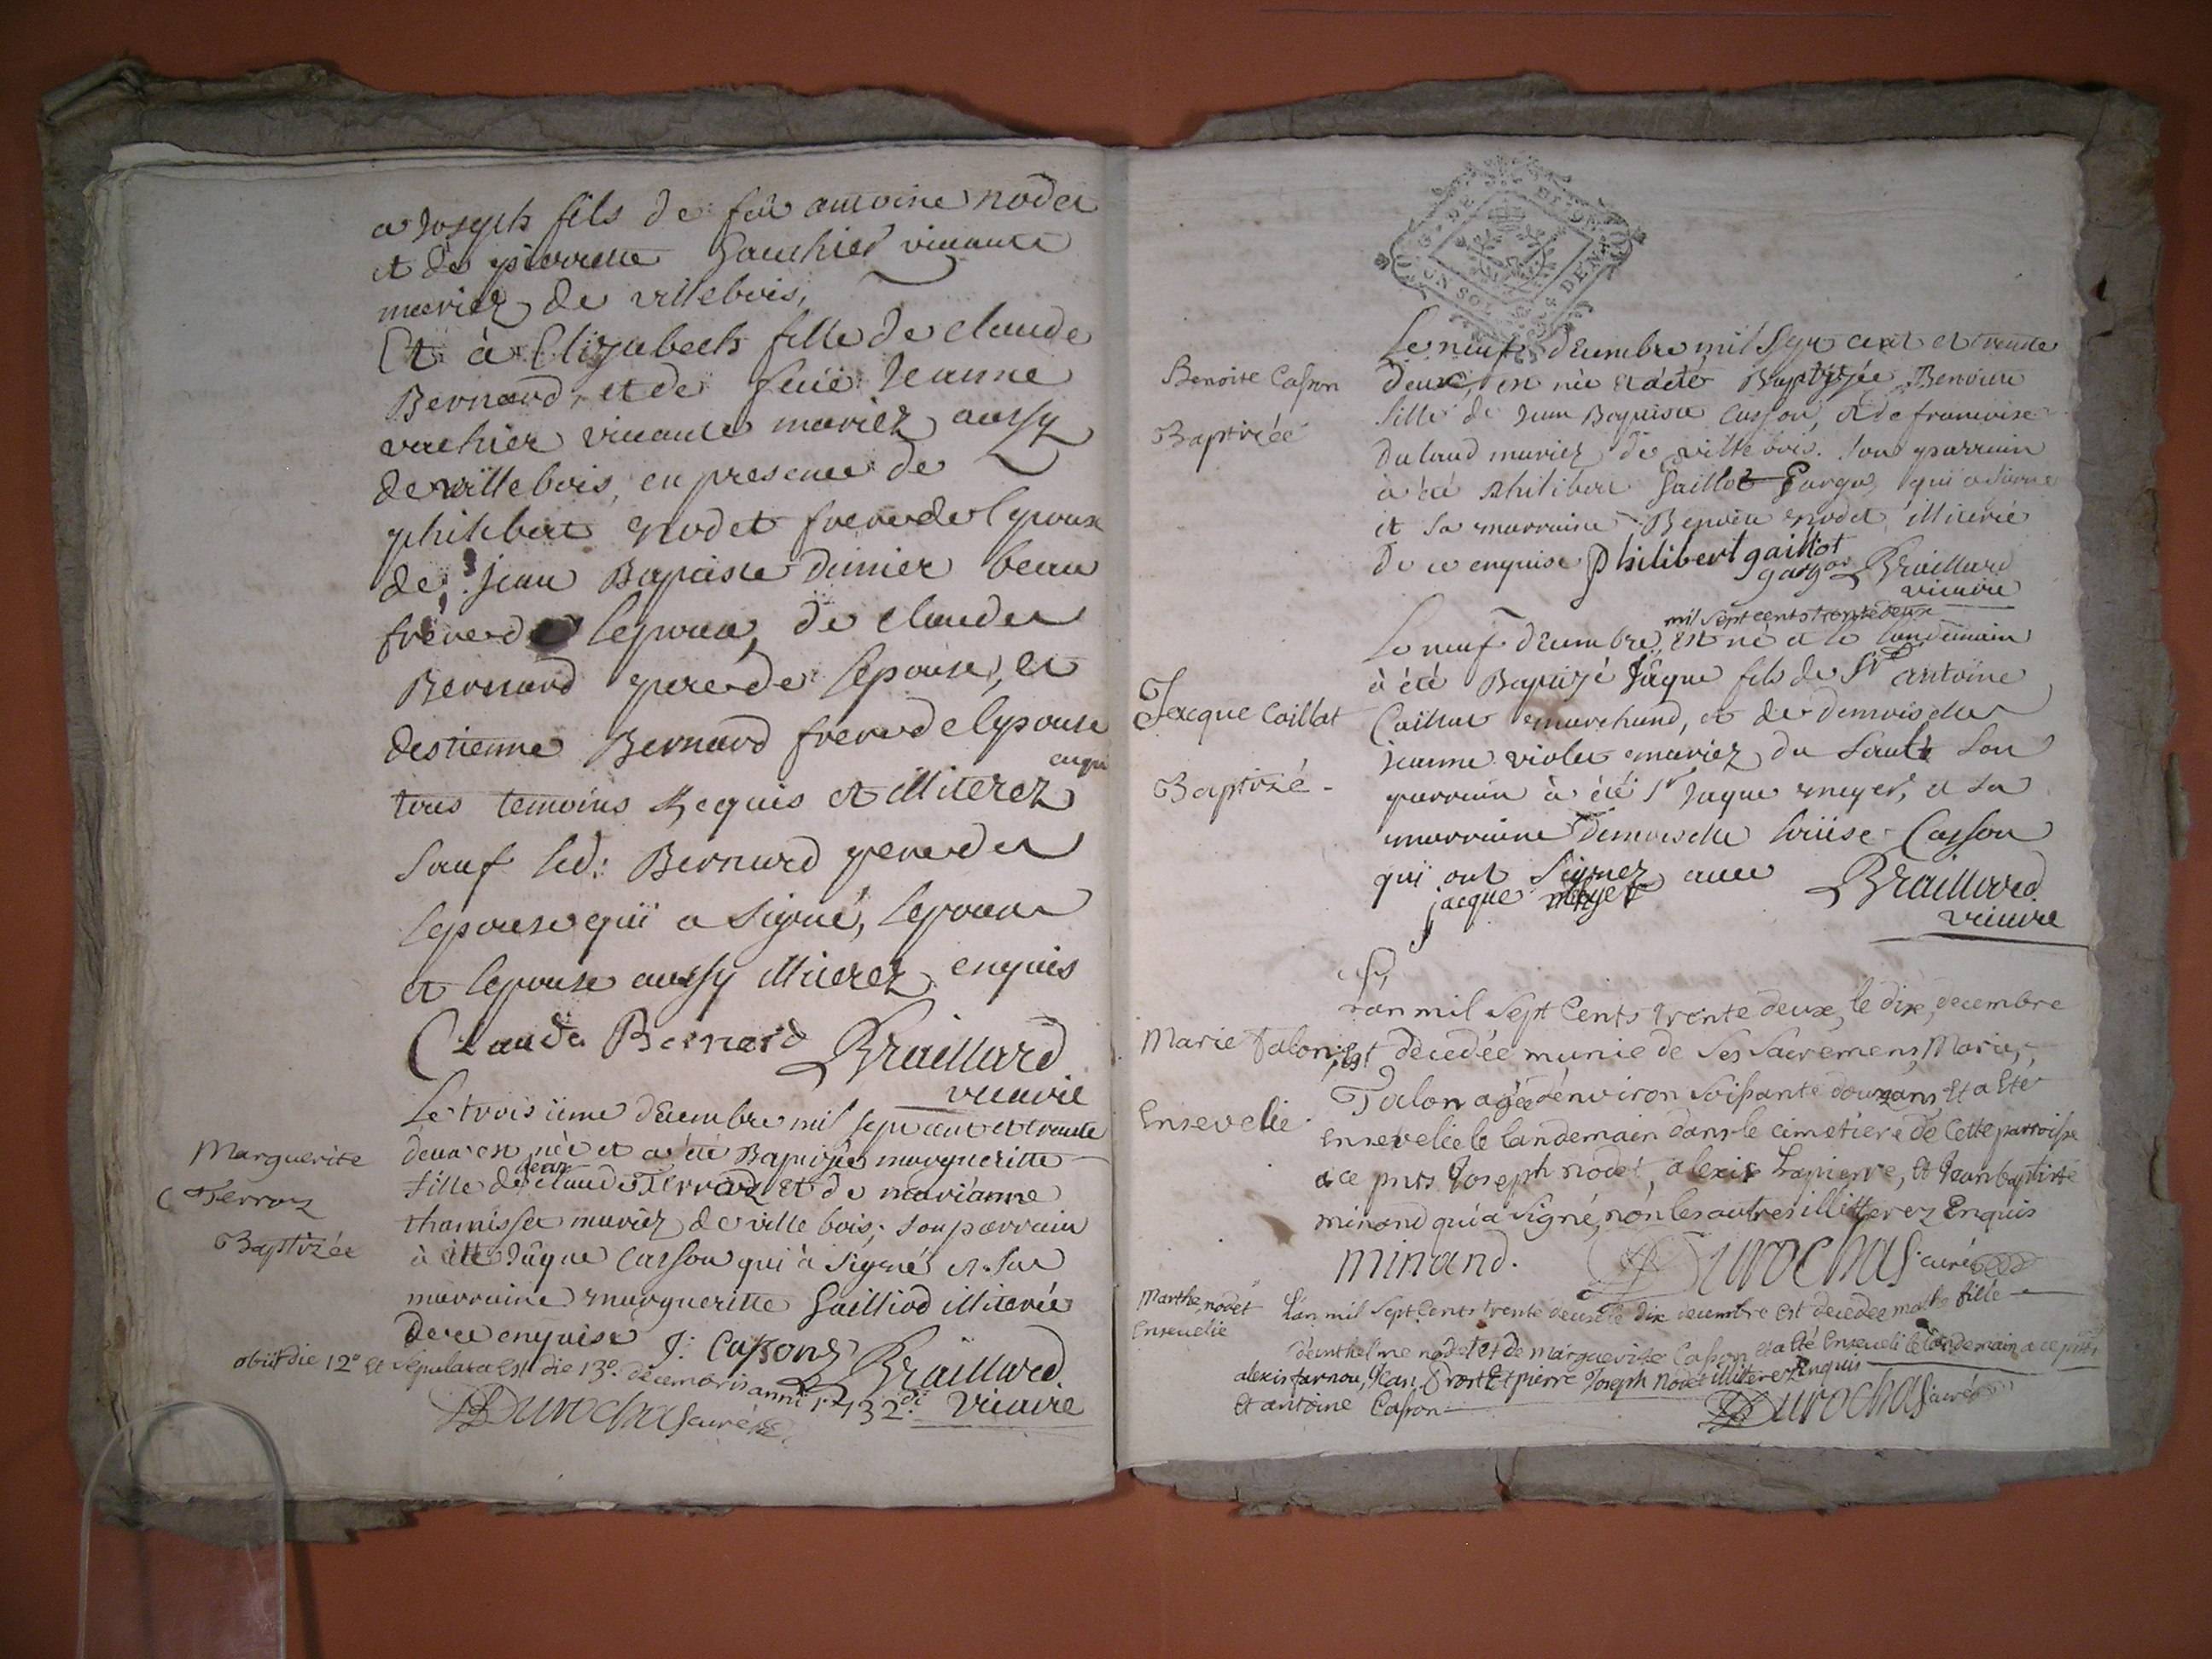 a Joseph fils de feu antoine nodet
et de pierrette Gauthier vivante
mariez de villebois,
Et à Elizabeth fille de claude
Bernard, et de feüe Jeanne
vachier vivante mariez aussy
de villebois, en presence de
philibert nodet frere de lepoux
de jean Baptiste dimier beau
frere de lepoux, de claude
Bernard pere de lepouse, et
destienne Bernard frere de lepouse
enqui
tous temoins Requis et illiterez
sauf led: Bernard pere de
lepouse qui a signé, lepoux
et lepouse aussy illiterez enquis
Claude Bernard Braillard
vicaire
Marguerite
Ferroz
Baptizée
Le troisiéme decembre mil sept cent et trente
deux est née et a été Baptizée margueritte
jean
fille de claude Ferroz et de marianne
thamisset mariez de ville bois; son parrain
à été Jâque Casson qui à signé et sa
marraine margueritte Gailliod illiterée
de ce enquise J: Casson Braillard
vicaire
obiit die 12° et sepulta est die 13° decembris anni 1732di
Durochas curé
DE
SOL
4 DEN
Benoite Casson
Baptizée
Le neuf decembre mil sept cent et trente
deux, est née et a été Baptizée Benoite
fille de Jean Baptiste Casson, et de francoise
Dulaud mariez de villebois. son parrain
à été philibert Gaillot Gargo, qui a signé
et sa marraine Benoite nodet illiterée
de ce enquise philibert gaillot
gargo Braillard
vicaire
Jacque Caillat
Baptizé -
mil sept cents trente deux
Le neuf decembre, est né et le landemain
à été Baptizé Jâque fils de Sr antoine
Caillat marchand, et de demoiselle
jeanne violet mariez du Sault son
parrain à été Sr Jaque meyer, et sa
marraine demoiselle Loüise Casson
qui ont signez avec Braillard
jacque meyer
vicaire
Marie Talon
Ensevelie
Lan mil sept cents trente deux, le dix, decembre
Est decedée munie de ses sacremens, Marie
Talon agée d'environ soissante douze ans Et a Eté
ensevelie le landemain dans le cimetiere de Cette parroisse
a ce pnts Joseph nodet, alexis Lapierre, Et Jean baptiste
minand qui a signé, non les autres illitterez Enquis
minand. Durochas curé
Marthe nodet
Ensevelie
Lan mil sept Cents trente deux le dix decembre est decedée marthe fille
d'anthelme nodet et de marguerite Casson et a Eté Enseveli le landemain a ce pnts
alexis farnou, Jean Drost Et pierre Joseph Nodet illiterez Enquis
Et antoine Casson
Durochas curé